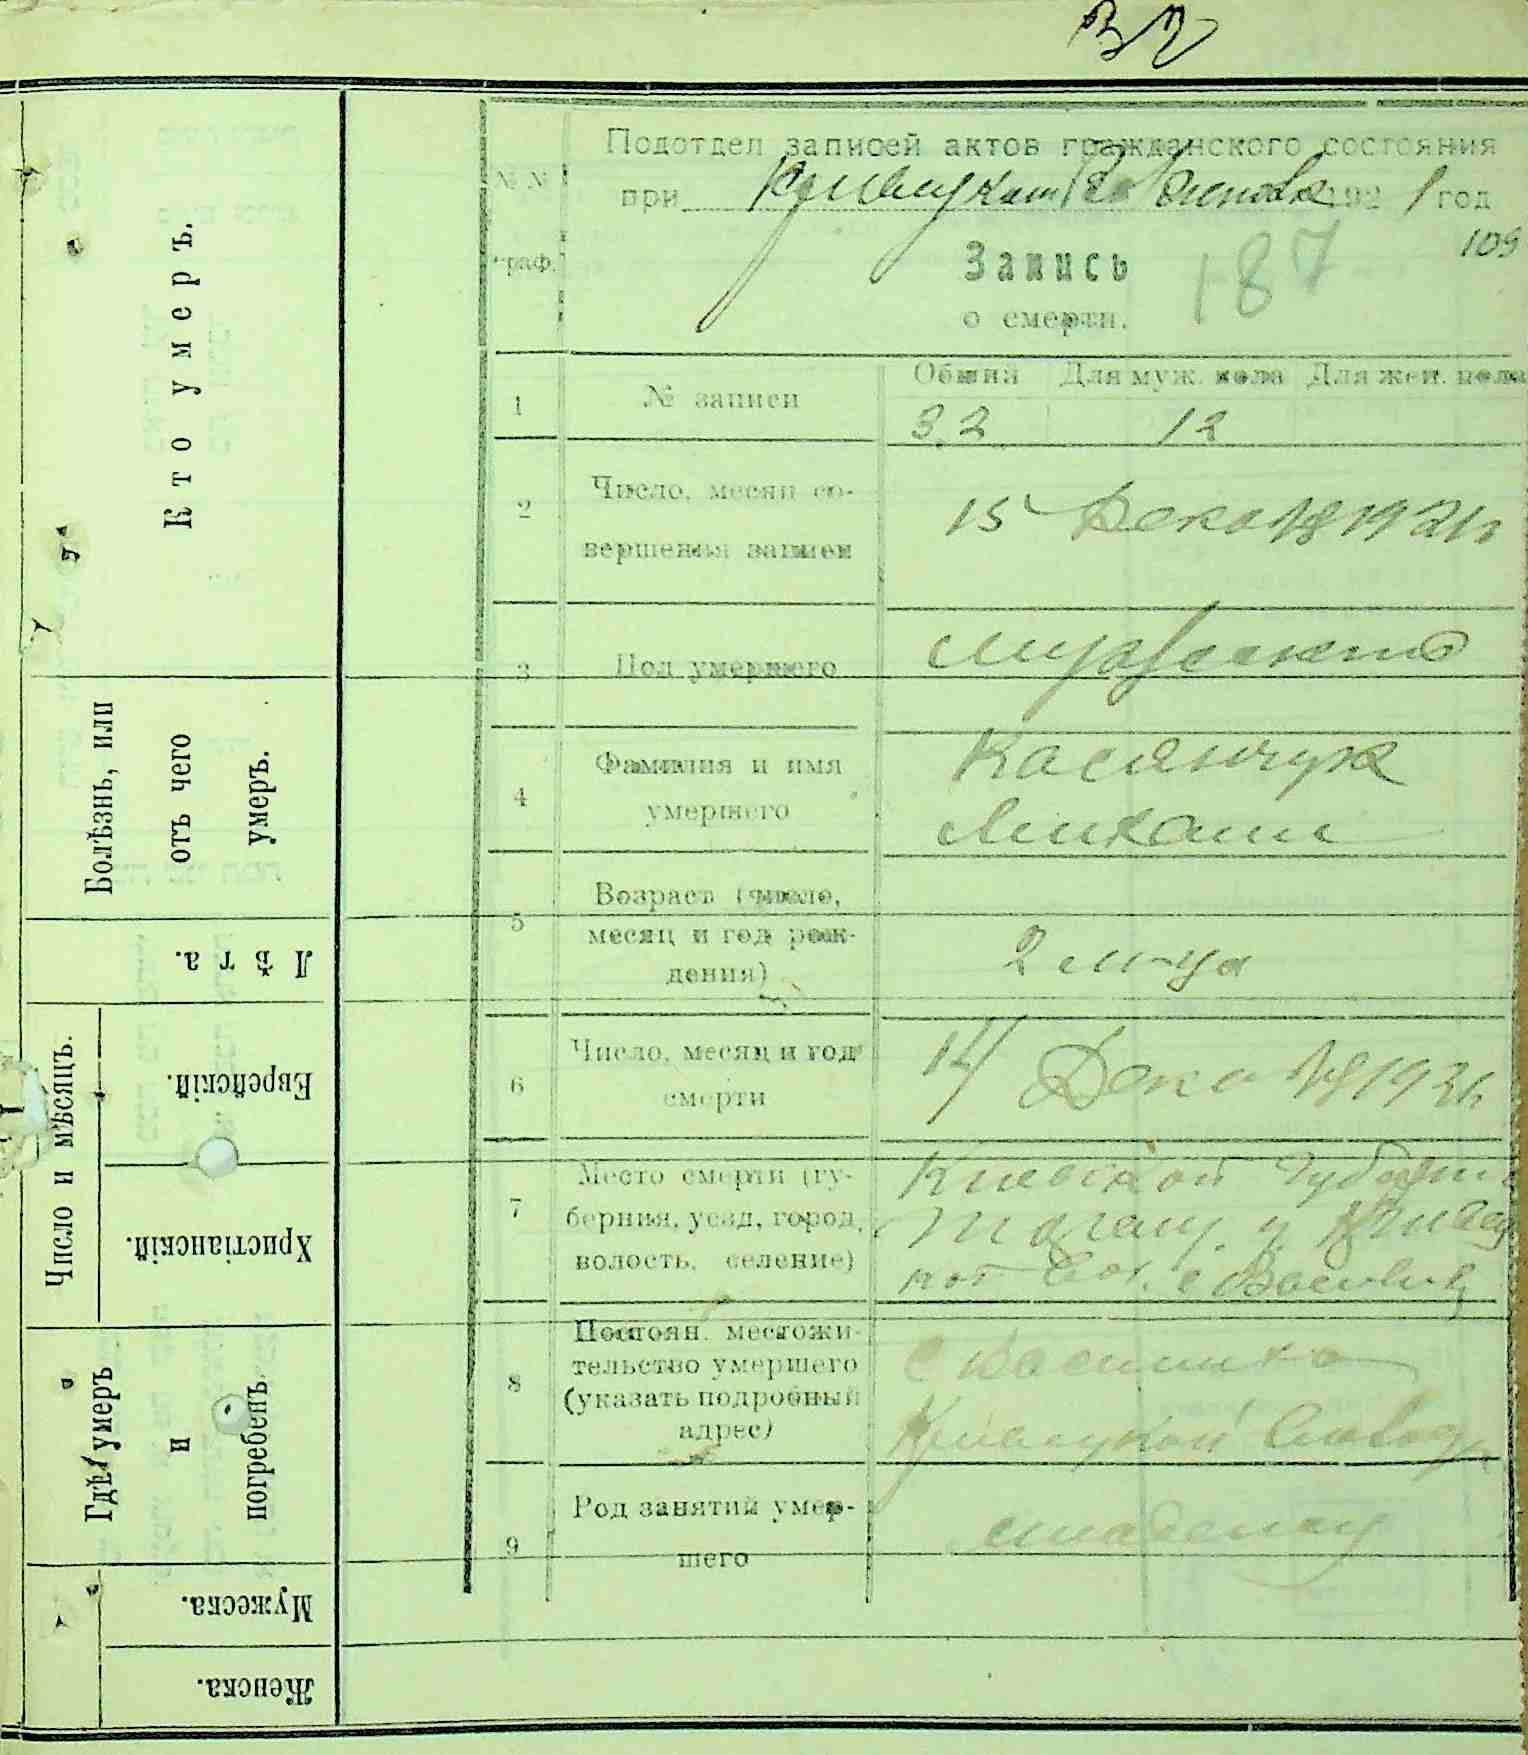 32
Подотдел записей актов гражданского состояния
при 1921 год
109
№№ граф.
Запись
187
о смерти.
Общий Для муж. пола Для жен. пола
1 № записи 32 12
2 Число, месяц со-
вершенья записи
15 Декабр 1921
3 Пол умершего
мужеского
4 Фамилия и имя
умершего
Касянчук
5 Возраст (число,
месяц и год рож-
дения)
2 м-ца
6 Число, месяц и год
смерти
14 Декабр 1921
7 Место смерти (гу-
берния, уезд, город,
волость, селение)
Киевской Губерн
8 Постоян. местожи-
тельство умершего
(указать подробный
адрес)
9 Род занятий умер-
шего
младенец
Кто умеръ.
Болѣзнь, или
отъ чего
умеръ.
Лѣта.
Число и мѣсяцъ.
Еврейскій.
Христіанскій.
Гдѣ умеръ
и
погребенъ
Мужеска.
Женска.